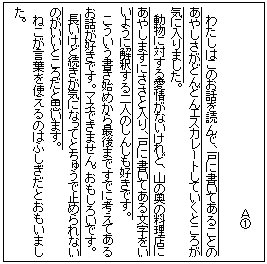 A①
　わたしはこのお話を読んで、戸に書いてあることの
あやしさがどんどんエスカレートしていくところが
気に入りました。
　動物に対する愛情がないけれど、山の奥の料理店に
あやしまずにささと入り、戸に書いてある文字をい
いように解釈する二人のしんしも好きです。
　こういう書き始めから最後まですでに考えてある
お話が好きです。マネできません。おもしろいです。
　長いけど続きが気になってとちゅうで止められない
のがいいところだと思います。
　ねこが言葉を使えるのはふしぎだとおもいまし
た。